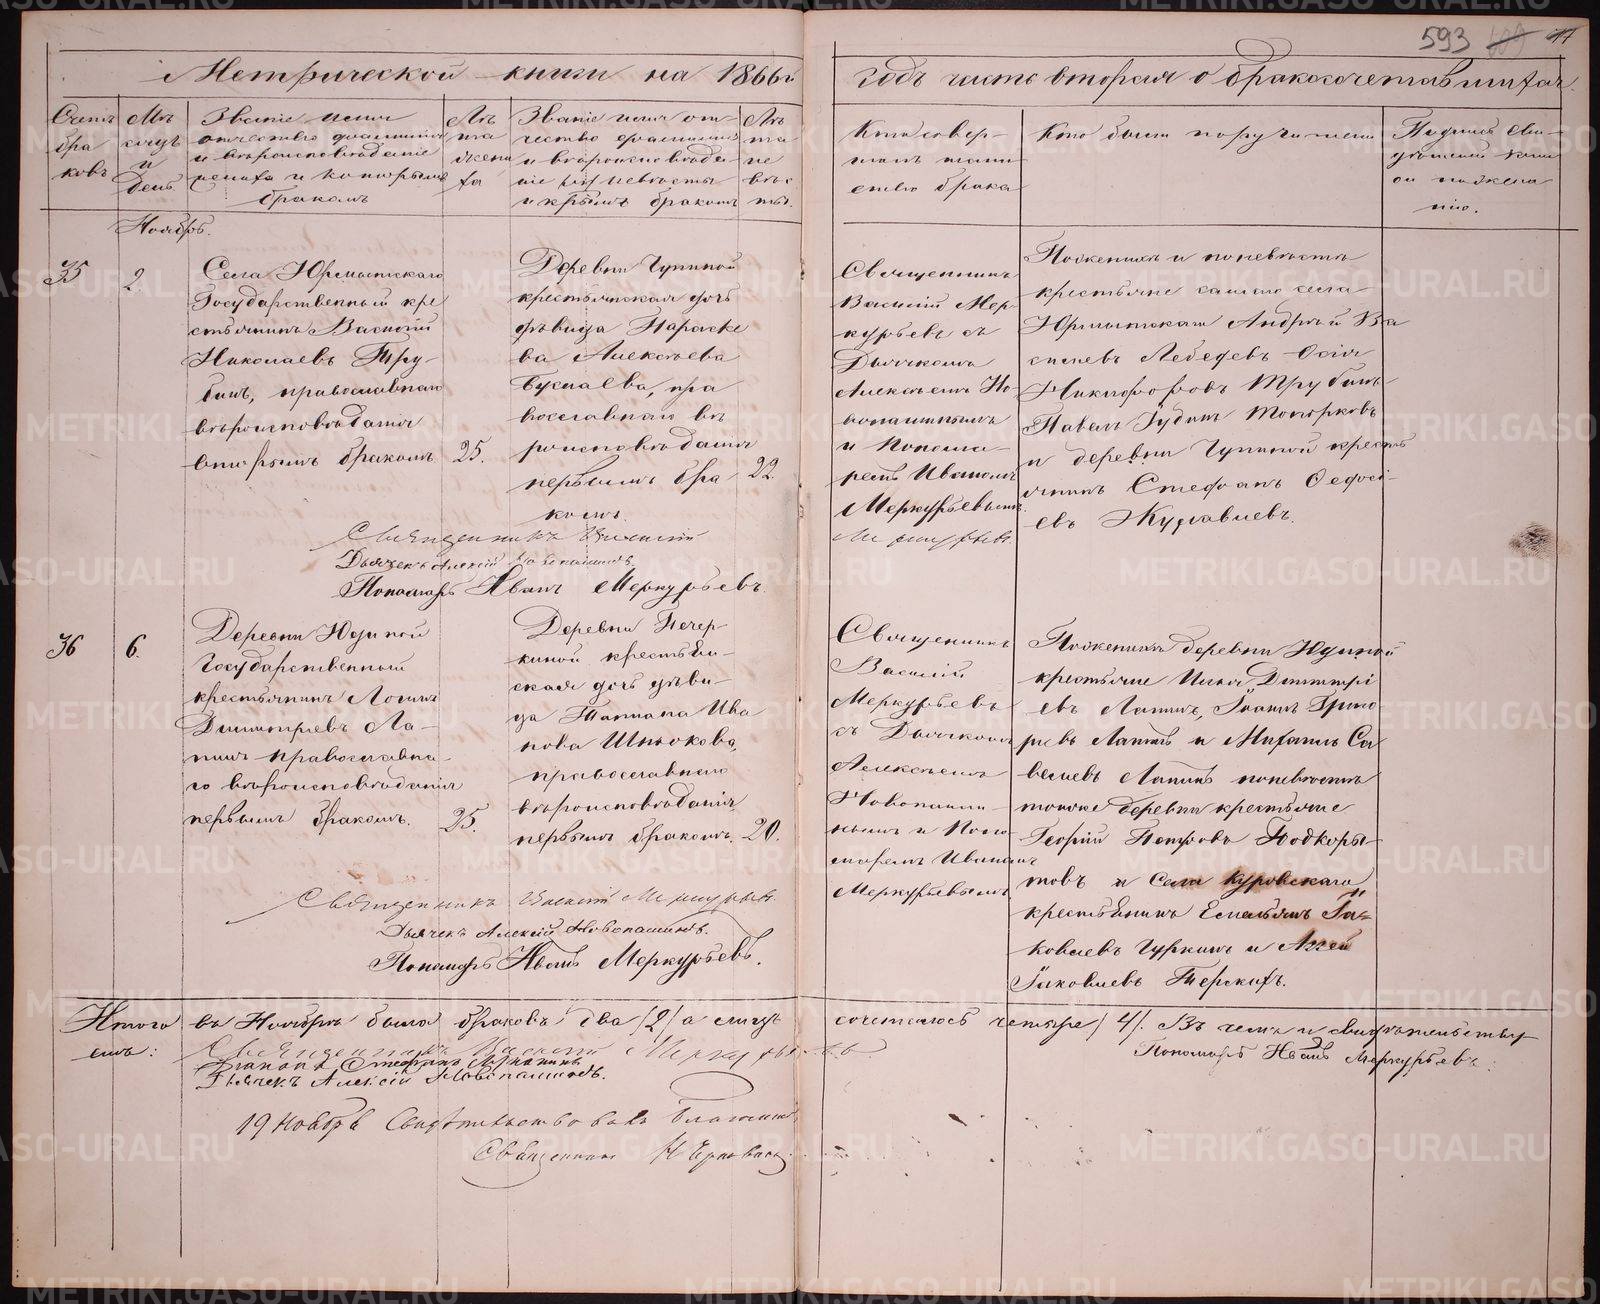 593 609
Метрической книги на 1866й годъ часть вторая о бракосочетавшихся.
Счетъ
бра
ковъ
Мѣ
сяцъ
и
день.
Званіе имя
отчество фамилія
и вѣроисповѣданіе
жениха и которымъ
бракомъ
Лѣ
та
жени
ха
Званіе имя от-
чество фамилія
и вѣроисповѣда-
ніе невѣсты
и крымъ бракомъ
Лѣ
та
не
вѣс-
ты.
Кто совер-
шалъ таин-
ство брака
Кто были поручители
Подпись сви-
дѣтелей
по жела
нію.
Ноябрь.
35
2
Села Юрмытскаго
Государственный кре
стьянинъ Василій
Николаевъ Тру-
бинъ, православнаго
вѣроисповѣданія
вторымъ бракомъ
25.
Деревни Чупиной
крестьянская дочь
дѣвица Параске
ва Алексѣева
Буклаева, пра
вославнаго вѣ
роисповѣданія
первымъ бра
комъ.
22.
Священникъ
Василій Мер-
курьевъ съ
Дьячкомъ
Алексѣемъ Но-
вопашинымъ
и Понома-
ремъ Иваномъ
Меркурьевымъ
Меркурьевъ.
По женихѣ и по невѣстѣ
крестьяне самаго села
Юрмытскаго Андрей Ва
сильевъ Лебедевъ Осія
Никифоровъ Трубинъ
Павелъ Іудинъ Топорковъ
и деревни Чупиной кресть
янинъ Стефанъ Ѳедосѣ-
евъ Журавлевъ.
Священникъ Василій
Дьячекъ Алексій Новопашинъ
Пономарь Иванъ Меркурьевъ.
36
6.
Деревни Юдиной
Государственный
крестьянинъ Логинъ
Димитріевъ Ла-
пинъ православна-
го вѣроисповѣданія
первымъ бракомъ.
25.
Деревни Печер-
киной крестьян-
ская дочь дѣви-
ца Татіана Ива
нова Шнюкова,
православнаго
вѣроисповѣданія
первымъ бракомъ.
20.
Священникъ
Василій
Меркурьевъ
съ Дьячкомъ
Алексѣемъ
Новопаши-
нымъ и Поно-
маремъ Иваномъ
Меркурьевымъ
По женихѣ деревни Юдиной
крестьяне Илья Димитрі
евъ Лапинъ, Іоаннъ Григо
рьевъ Лапинъ и Михаилъ Са
вельевъ Лапинъ по невѣстѣ
тойже деревни крестьяне
Георгій Петровъ Подкоры-
товъ и Села Куровскаго
крестьянинъ Емельянъ Іа-
ковлевъ Чуркинъ и Аггей
Іаковлевъ Терскихъ.
Священникъ Василій Меркурьевъ.
Дьячекъ Алексій Новопашинъ.
Пономарь Иванъ Меркурьевъ.
Итого въ Ноябрѣ было браковъ два /2/ а лицъ сочеталось четыре /4/. Въ чемъ и свидѣтельству
емъ: Священникъ Василій Меркурьевъ Пономарь Иванъ Меркурьевъ.
Стефанъ
Дьячекъ Алексій Новопашинъ.
19 Ноября Свидѣтельствовалъ Благочинный
Священникъ
METRIKI.GASO-URAL.RU